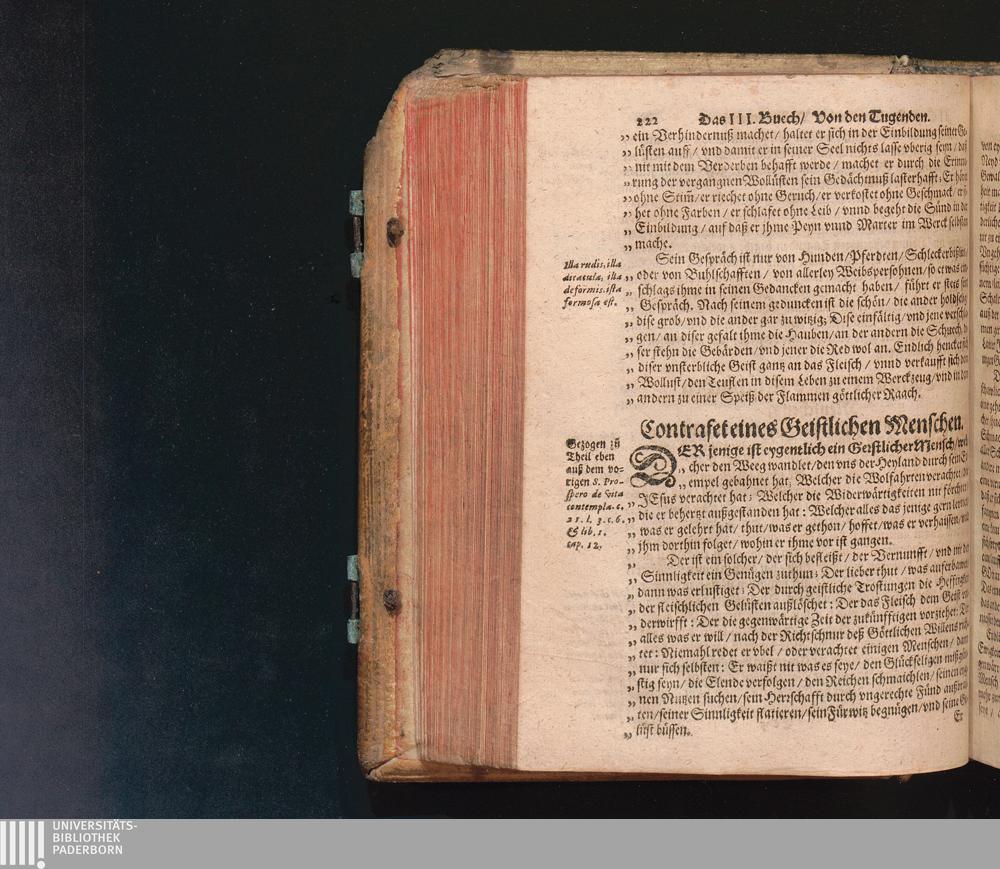 222 Das III. Buech/ Von den Tugenden.
„ ein Verhindernuß machet/ haltet er sich in der Einbildung seiner
„ lüsten auff/ vnd damit er in seiner Seel nichts lasse vberig seyn/ daß
„ nit mit dem Verderben behafft werde/ machet er durch die
„ rung der vergangnen Wollüsten sein Gedächtnuß lasterhafft: Er
„ ohne Stim̃/ er riechet ohne Geruch/ er verkostet ohne Geschmack/
„ het ohne Farben/ er schlafet ohne Leib/ vnnd begeht die Sünd in der
„ Einbildung/ auf daß er jhme Peyn vnnd Marter im Werck selbsten
„ mache.
Illa rudis, illa
dicacula, illa
deformis, ista
formosa est.
Sein Gespräch ist nur von Hunden/ Pferdten/
„ oder von Buhlschafften/ von allerley Weibspersohnen/ so etwas
„ schlags ihme in seinen Gedancken gemacht haben/ führt er stets sein
„ Gespräch. Nach seinem geduncken ist die schön/ die ander holdselig
„ dise grob/ vnd die ander gar zu witzig; Dise einfältig/ vnd jene
„ gen/ an diser gefalt ihme die Hauben/ an der andern die Schuech,
„ ser stehn die Gebärden/ vnd jener die Red wol an. Endlich hencket sich
„ diser vnsterbliche Geist gantz an das Fleisch/ vnnd verkaufft sich dem
„ Wollust/ den Teuflen in disem Leben zu einem Werckzeug/ vnd in dem
„ andern zu einer Speiß der Flammen göttlicher Raach.
Contrafet eines Geistlichen Menschen.
Gezogen zů
Theil eben
auß dem vo-
rigen S. Pro-
spero de vita
contempla. c.
21. l. 3. c. 6.
& lib. 1.
cap. 12.
DER jenige ist eygentlich ein Geistlicher Mensch/ wel
„ cher den Weeg wandlet/ den vns der Heyland durch sein
„ empel gebahnet hat; Welcher die Wolfahrten verachtet/ die
„ JEsus verachtet hat: Welcher die Widerwärtigkeiten nit förchtet/
„ die er behertzt außgestanden hat: Welcher alles das jenige gern lernet/
„ was er gelehrt hat/ thut/ was er gethon/ hoffet/ was er verhaissen/
„ jhm dorthin folget/ wohin er ihme vor ist gangen.
„ Der ist ein solcher/ der sich befleißt/ der Vernunfft/ vnd nit der
„ Sinnligkeit ein Genügen zuthun: Der lieber thut/ was auferbawet
„ dann was erlustiget: Der durch geistliche Tröstungen die
„ der fleischlichen Gelüsten außlöschet: Der das Fleisch dem Geist
„ derwirfft: Der die gegenwärtige Zeit der zukünfftigen vorziehet: Der
„ alles was er will/ nach der Richtschnur deß Göttlichen Willens
„ tet: Niemahl redet er vbel/ oder verachtet einigen Menschen/ dann
„ nur sich selbsten: Er waißt nit was es seye/ den Glückseligen
„ stig seyn/ die Elende verfolgen/ den Reichen schmaichlen/ seinen
„ nen Nutzen suchen/ sein Herrschafft durch vngerechte Fünd
„ ten/ seiner Sinnligkeit flatieren/ sein Fürwitz begnügen/ vnd seine
„ lüst büssen.
Er
UNIVERSITÄTS-
BIBLIOTHEK
PADERBORN